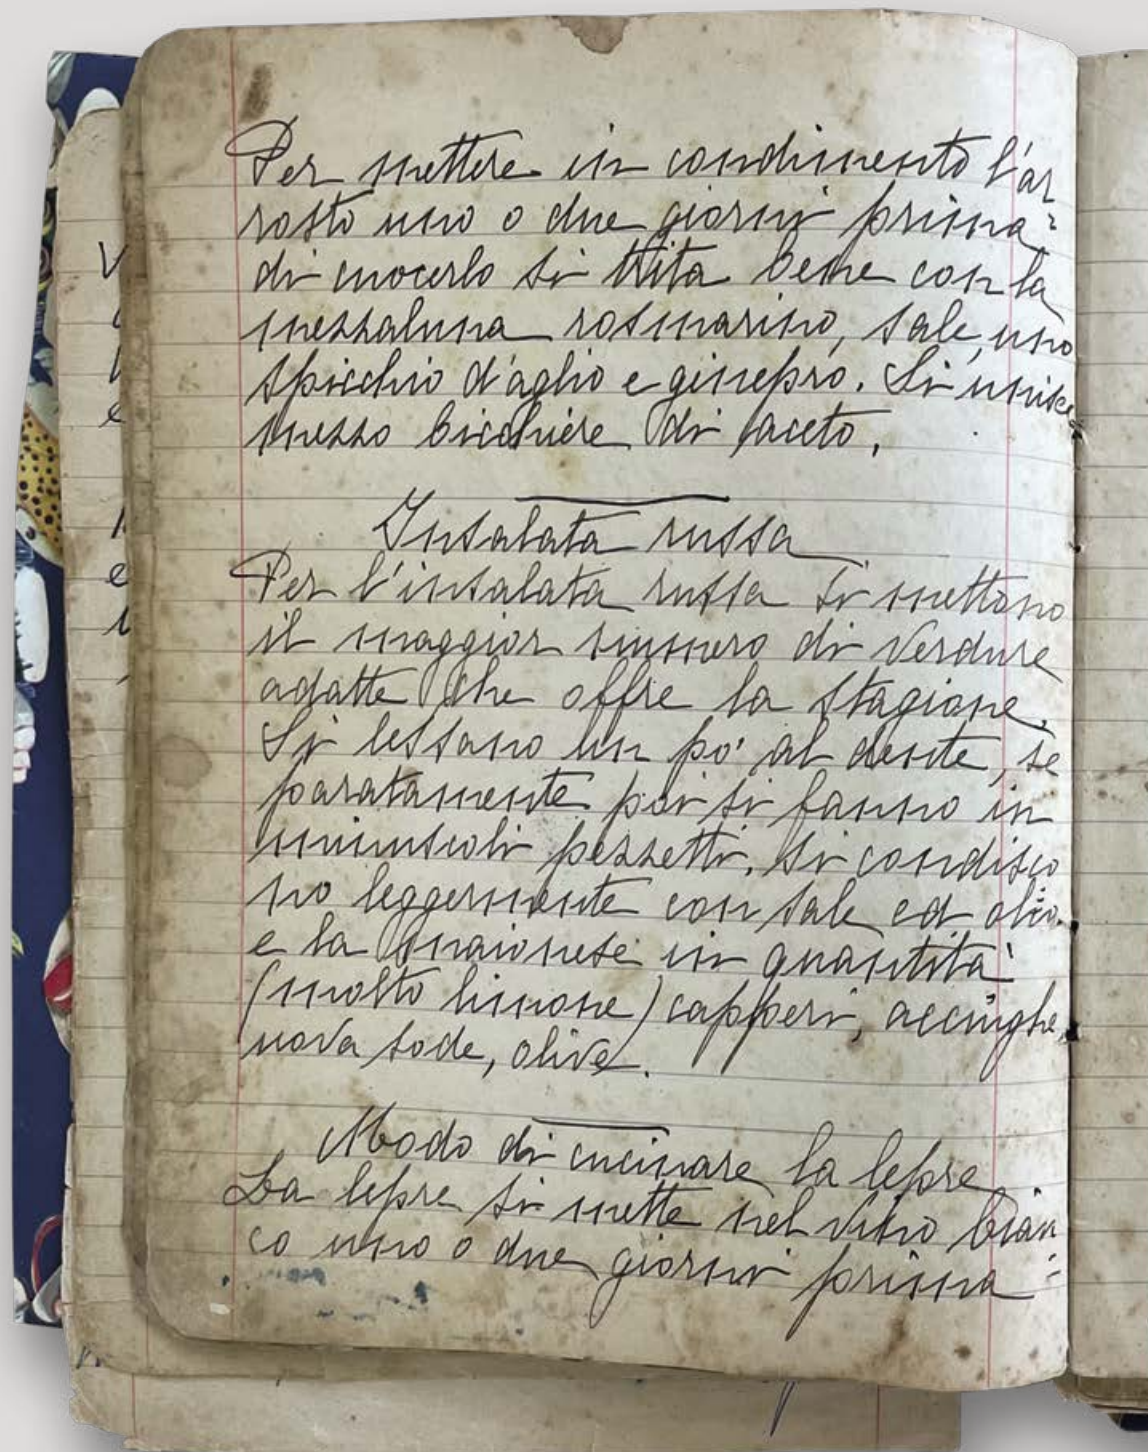 Per mettere in condimento l'ar
rosto uno o due giorni prima
di cuocerlo si trita bene con la
mezzaluna rosmarino, sale, uno
spicchio d'aglio e ginepro. Si unisce
mezzo bicchiere di aceto.
Insalata russa
Per l'insalata russa si mettono
il maggior numero di verdure
adatte che offre la stagione.
Si lessano un po' al dente, se
paratamente poi si fanno in
minuscoli pezzetti. Si condisco
no leggermente con sale ed olio
e la maionese in quantità
(molto limone) capperi, acciughe,
uova sode, olive.
Modo di cucinare la lepre
La lepre si mette nel vino bian
co uno o due giorni prima